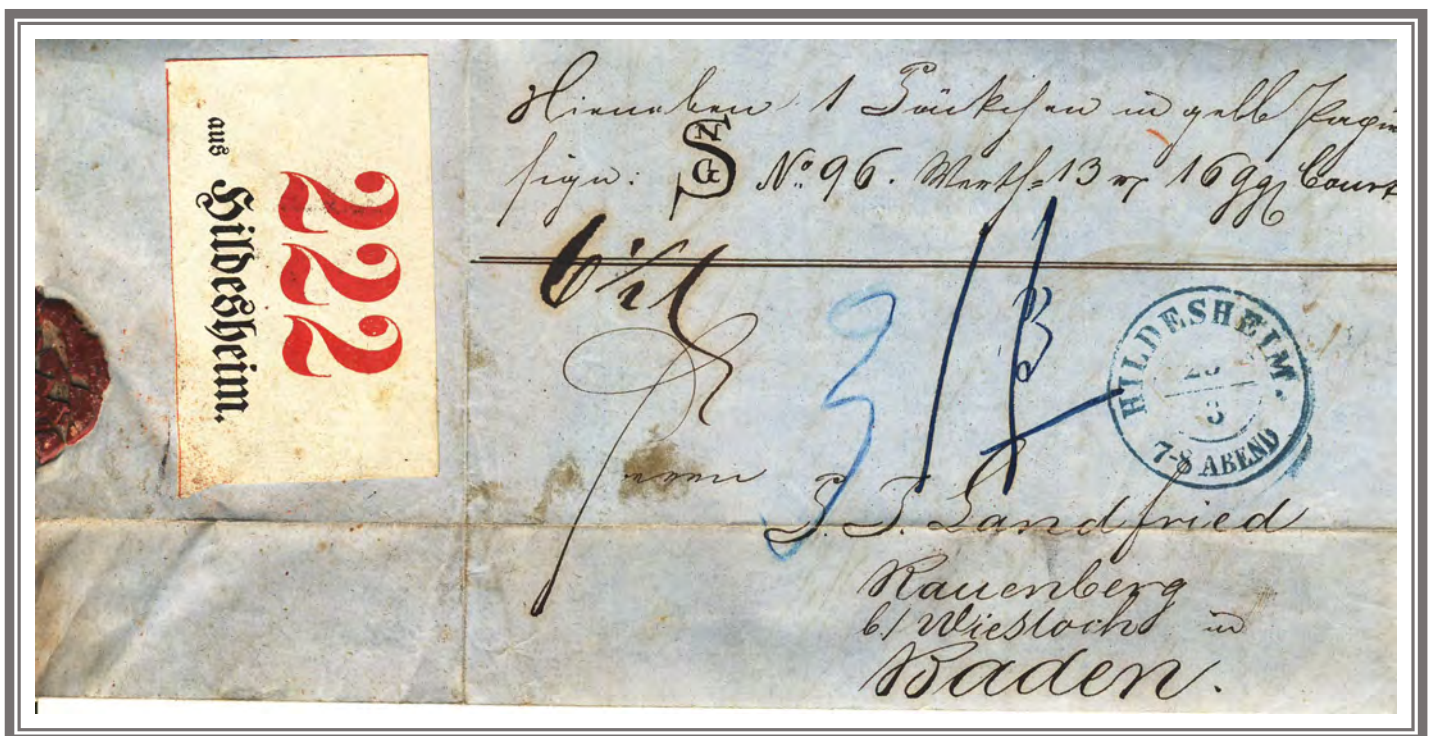 222
aus Hildesheim.
Hierneben 1 Päckchen in gelb Papier
sign: NSG Nº 96. Werth=13 16 ggr Court
6 1/2
3
HILDESHEIM.
3
7-8 ABEND
Herrn
P. J. Landfried
Rauenberg
b/ Wiesloch in
Baden.